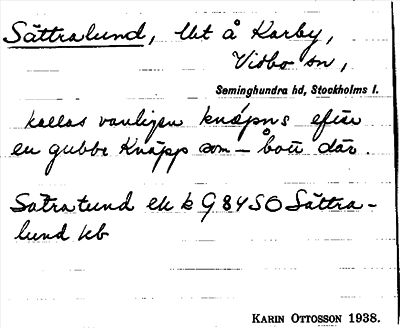 Sättralund, lht å Karby,
Vidbo sn,
Seminghundra hd, Stockholms l.
kallas vanligen knäpns efter
en gubbe Knäpp som — bott där.
Sätratund ek k G 84 SO Sättra-
lund kb
KARIN OTTOSSON 1938.